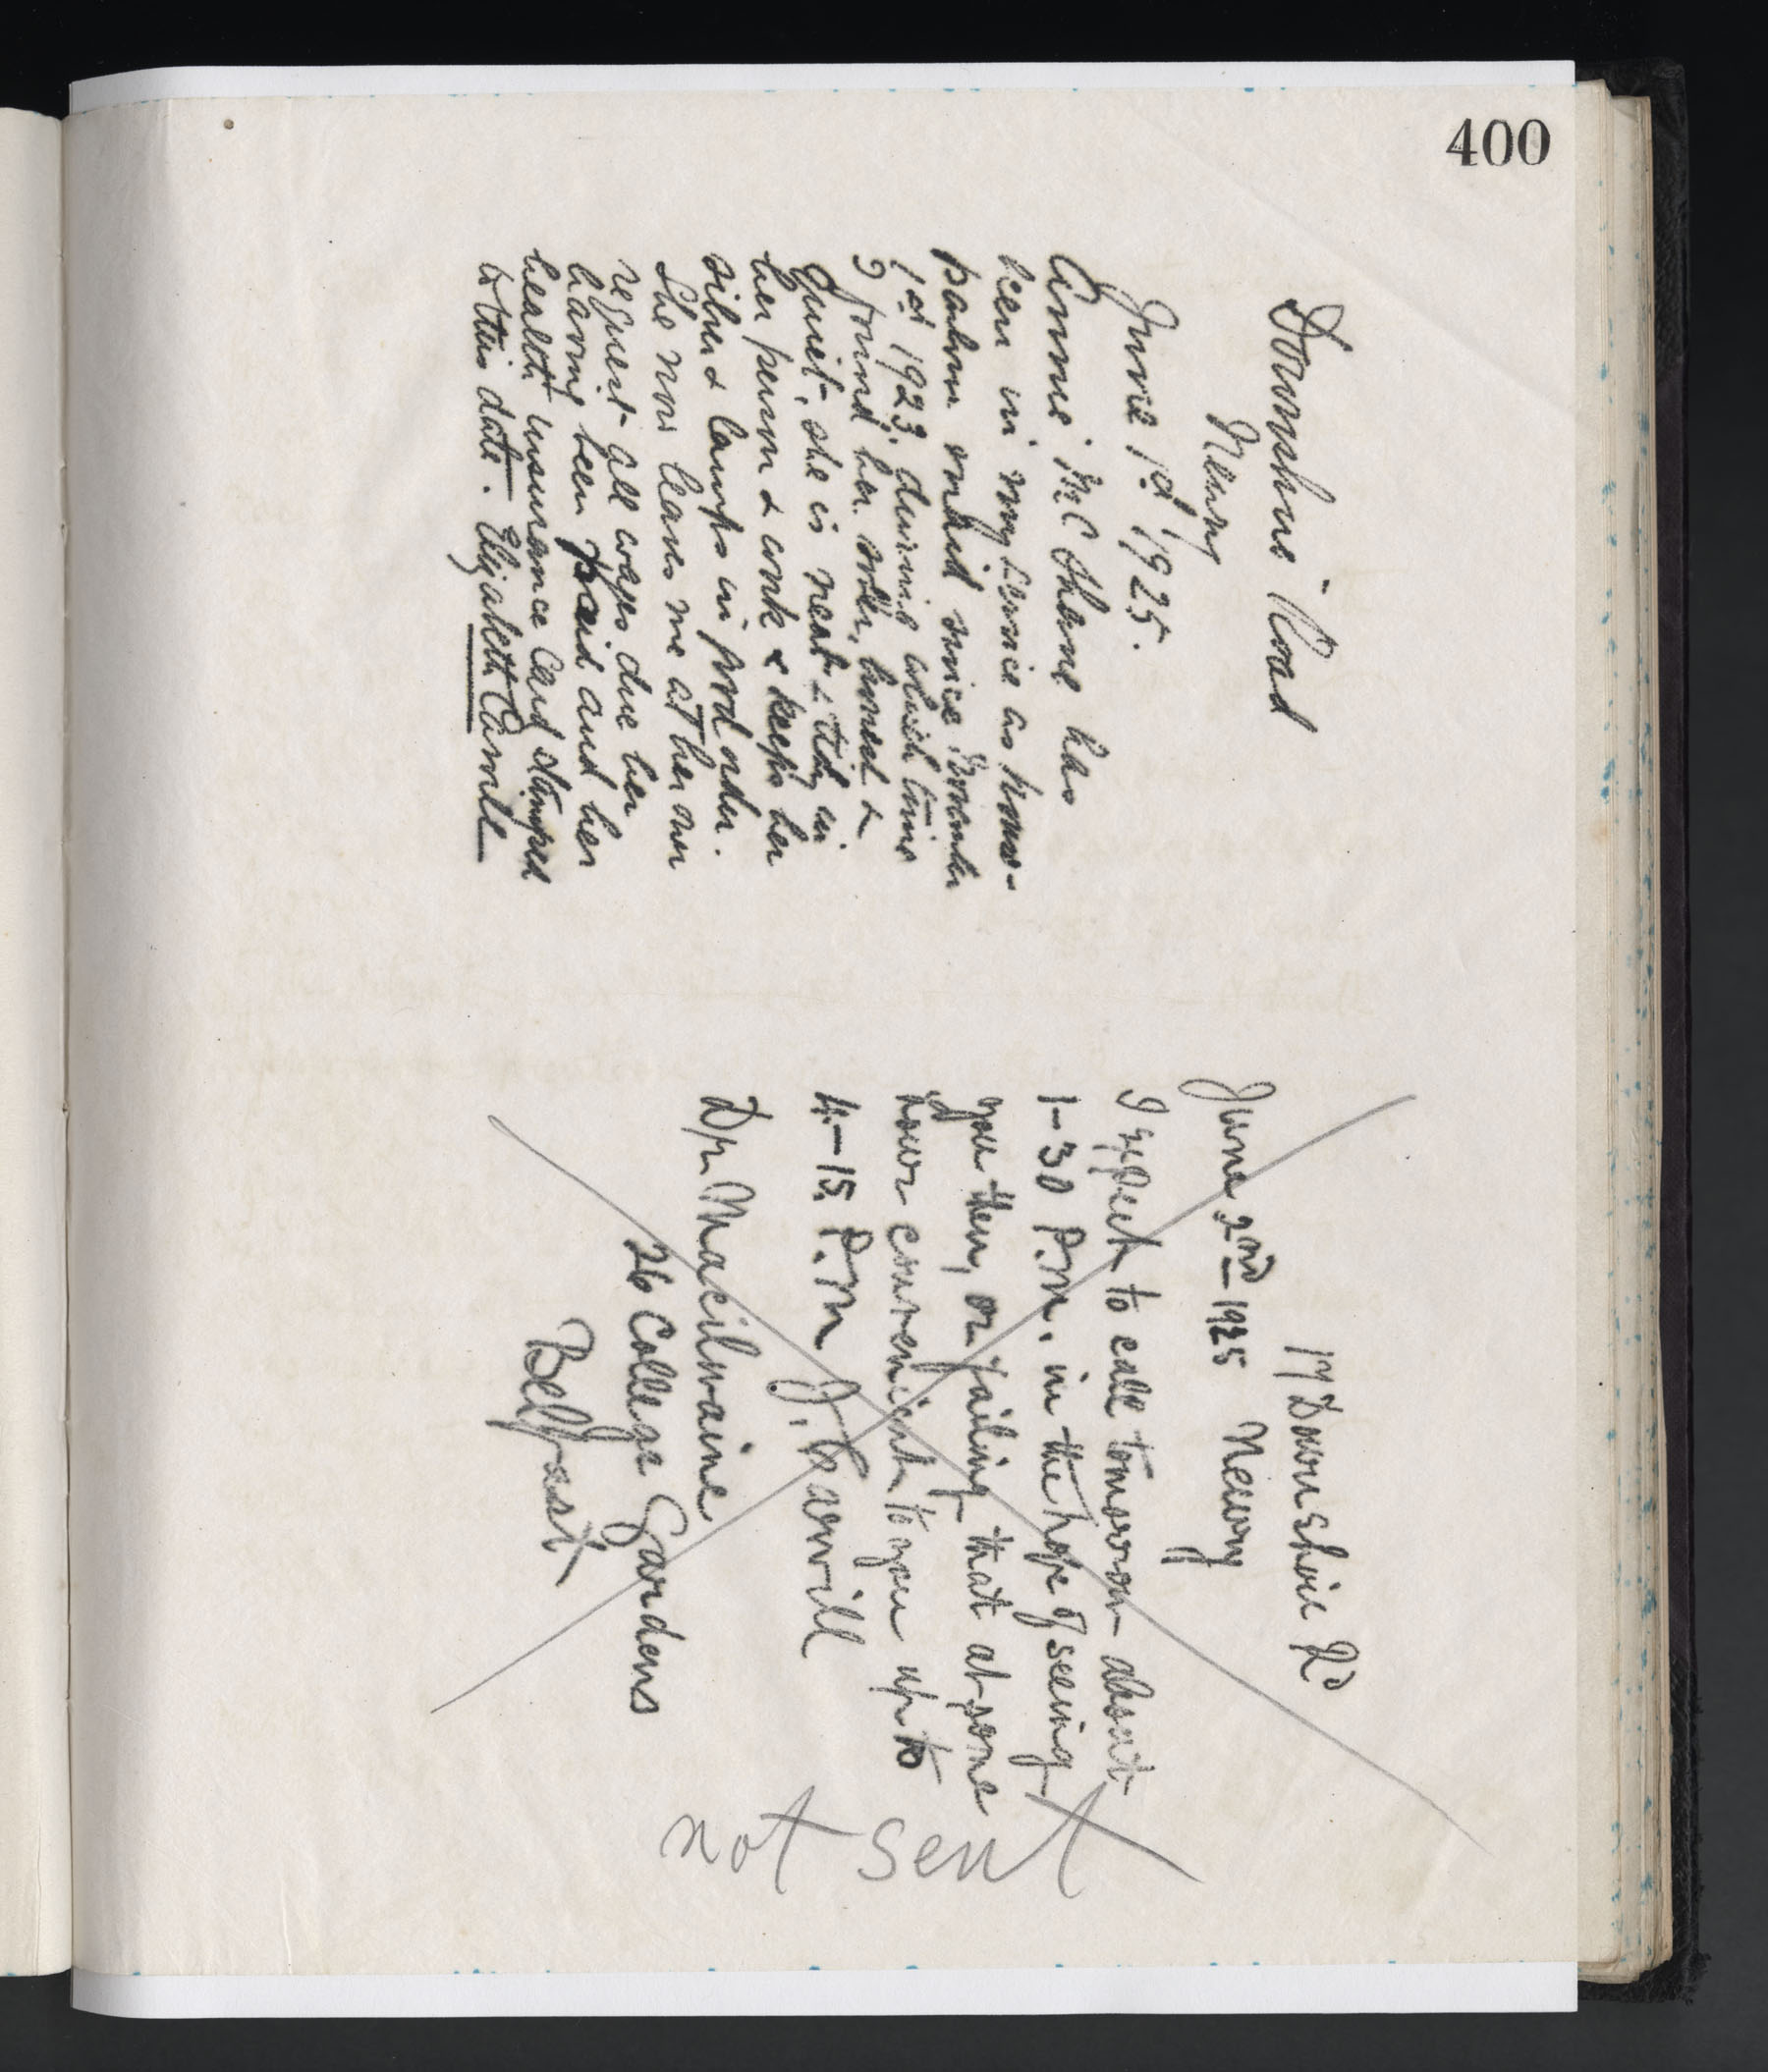 400
Downshire Road
Newry
June 1st 1925.
Annie McShane has
been in my service as house-
parlour maid since November
1st 1923, during which time
I found her sober, honest &
quiet, she is neat & tidy in
her person & work & keeps her
silver & lamps in good order.
She now leaves me at her own
request all wages due her
having been paid and her
health insurance card stamped
to this date. Elizabeth Carvill
17 Downshire Rd
June 2nd 1925 Newry
I expect to call tomorrow about
1-30 P.M. in the hope of seeing
you then, or failing that at some
hour convenient to you up to
4-15 P.M J. Carvill
Dr. Macilwaine
26 College Gardens
Belfast
not sent